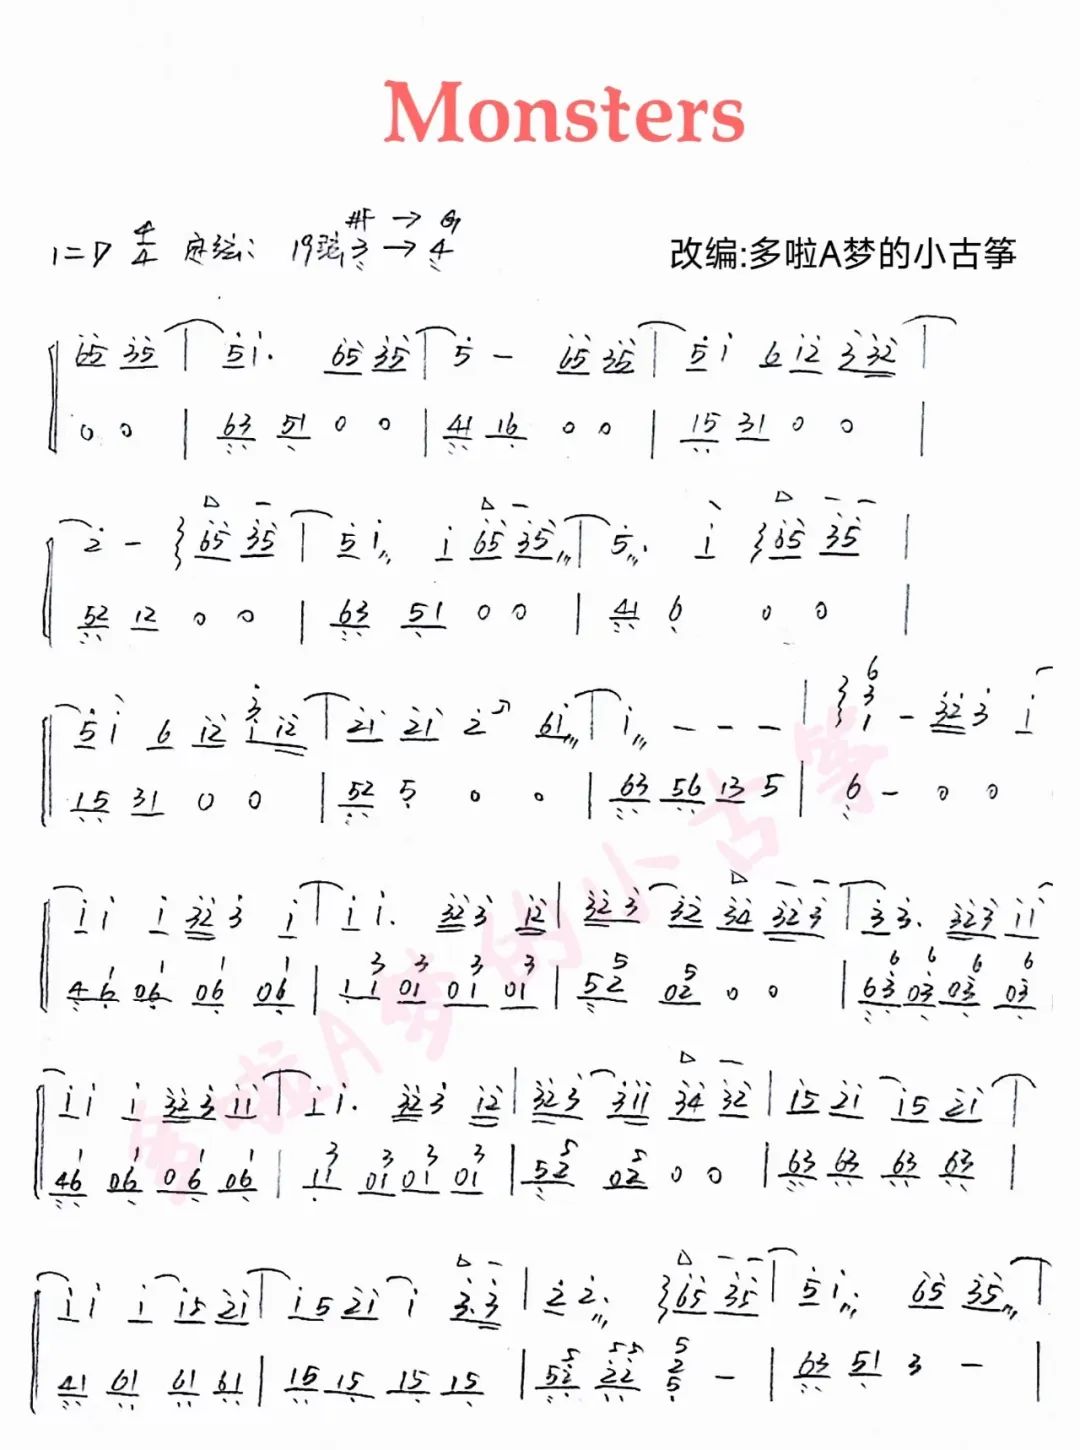 Monsters
# → 4
1=D 4/4 定弦: 19弦3 → 4
改编:多啦A梦的小古筝
65 35 | 51. 65 35 | 5 - 65 35 | 51 6 12 3 32 |
0 0 | 63 51 0 0 | 41 16 0 0 | 15 31 0 0 |
2 - 65 35 | 51 1 65 35 | 5. 1 65 35 |
52 12 0 0 | 63 51 0 0 | 41 6 0 0 |
51 6 12 3 1 12 | 21 21 2 61 | 1 - - - | 6 3 1 - 32 3 1
15 31 0 0 | 52 5 0 0 | 63 56 13 5 | 6 - 0 0
11 1 32 3 1 | 11. 32 3 12 | 32 3 32 34 32 3 | 33. 32 3 11
1 1 1 1 3 3 3 3 5 5 6 6 6 6
46 06 06 06 | 11 01 01 01 | 52 02 0 0 | 63 03 03 03
11 1 32 3 11 | 11. 32 3 12 | 32 3 311 34 32 | 15 21 15 21 |
1 1 1 1 3 3 3 3 5 5
46 06 06 06 | 11 01 01 01 | 52 02 0 0 | 63 63 63 63 |
11 1 15 21 | 15 21 1 3. 3 | 2 2. 65 35 | 51. 65 35 |
5 55 5
41 61 61 61 | 15 15 15 15 | 52 22 2 5 - | 63 51 3 - |
多啦A梦的小古筝